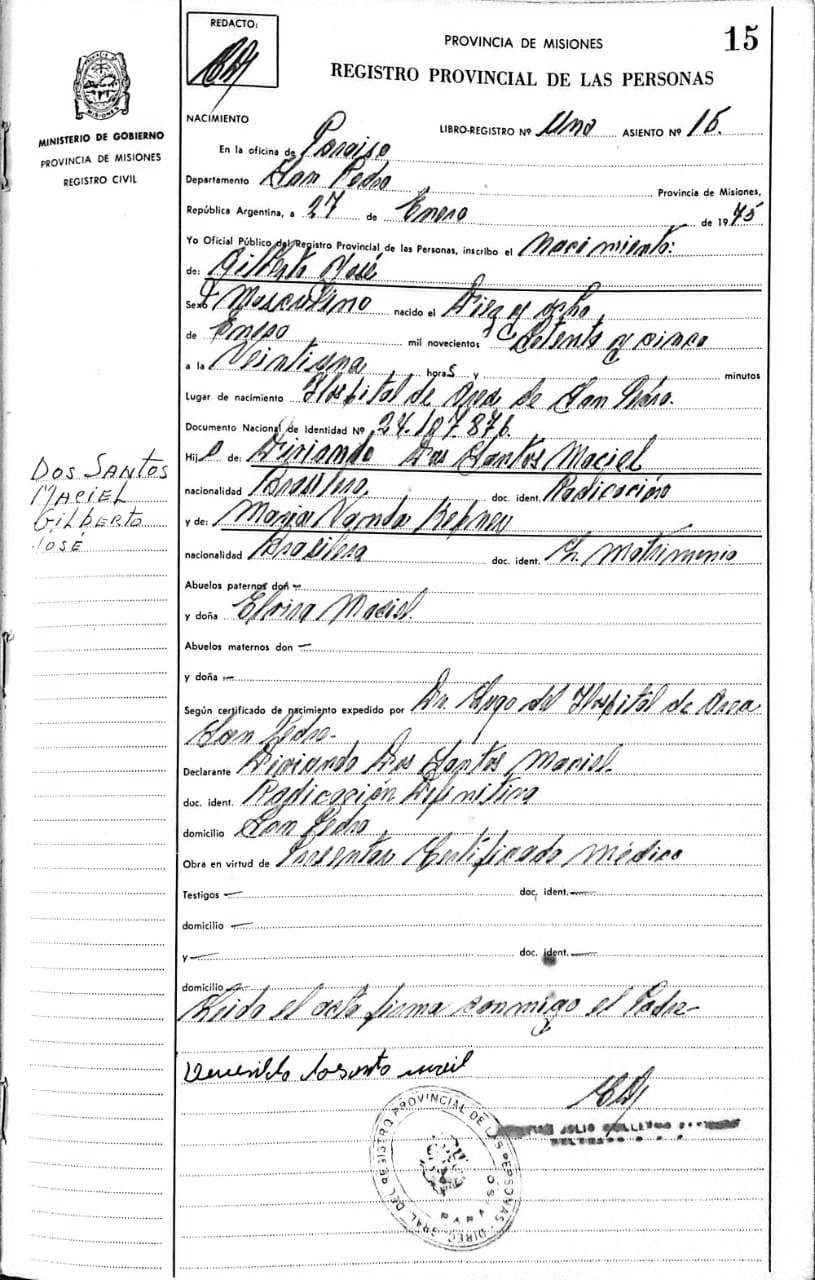 REDACTO:
15
PROVINCIA DE MISIONES
REGISTRO PROVINCIAL DE LAS PERSONAS
MINISTERIO DE GOBIERNO
PROVINCIA DE MISIONES
REGISTRO CIVIL
NACIMIENTO
LIBRO-REGISTRO Nº Uno ASIENTO Nº 15.
En la oficina de Paraiso
Departamento San Pedro Provincia de Misiones,
República Argentina, a 27 de Enero de 1975
Yo Oficial Público del Registro Provincial de las Personas, inscribo el Nacimiento:
de: Gilberto José
Sexo Masculino nacido el Diez y ocho
de Enero mil novecientos Setenta y cinco
a la Veintiuna horas y minutos
Lugar de nacimiento Hospital de Area de San Pedro.
Documento Nacional de Identidad Nº 24.107.876.
Hijo de: Dos Santos Maciel
DOS SANTOS
MACIEL
GILBERTO
JOSÉ
nacionalidad Brasilera doc. ident. Radicación
y de: Maria Vanda
nacionalidad Brasilera doc. ident. Matrimonio
Abuelos paternos don —
y doña Maciel.
Abuelos maternos don —
y doña —
Según certificado de nacimiento expedido por Dr. Lugo del Hospital de Area
San Pedro-
Declarante Dos Santos Maciel.
doc. ident. Radicación Definitiva
domicilio San Pedro
Obra en virtud de Presentar Certificado médico
Testigos — doc. ident. —
domicilio —
y — doc. ident. —
domicilio
Leida el acta firma conmigo el Padre-
JULIO GUILLERMO
DIREC. GRAL. DEL REGISTRO PROVINCIAL DE LAS PERSONAS